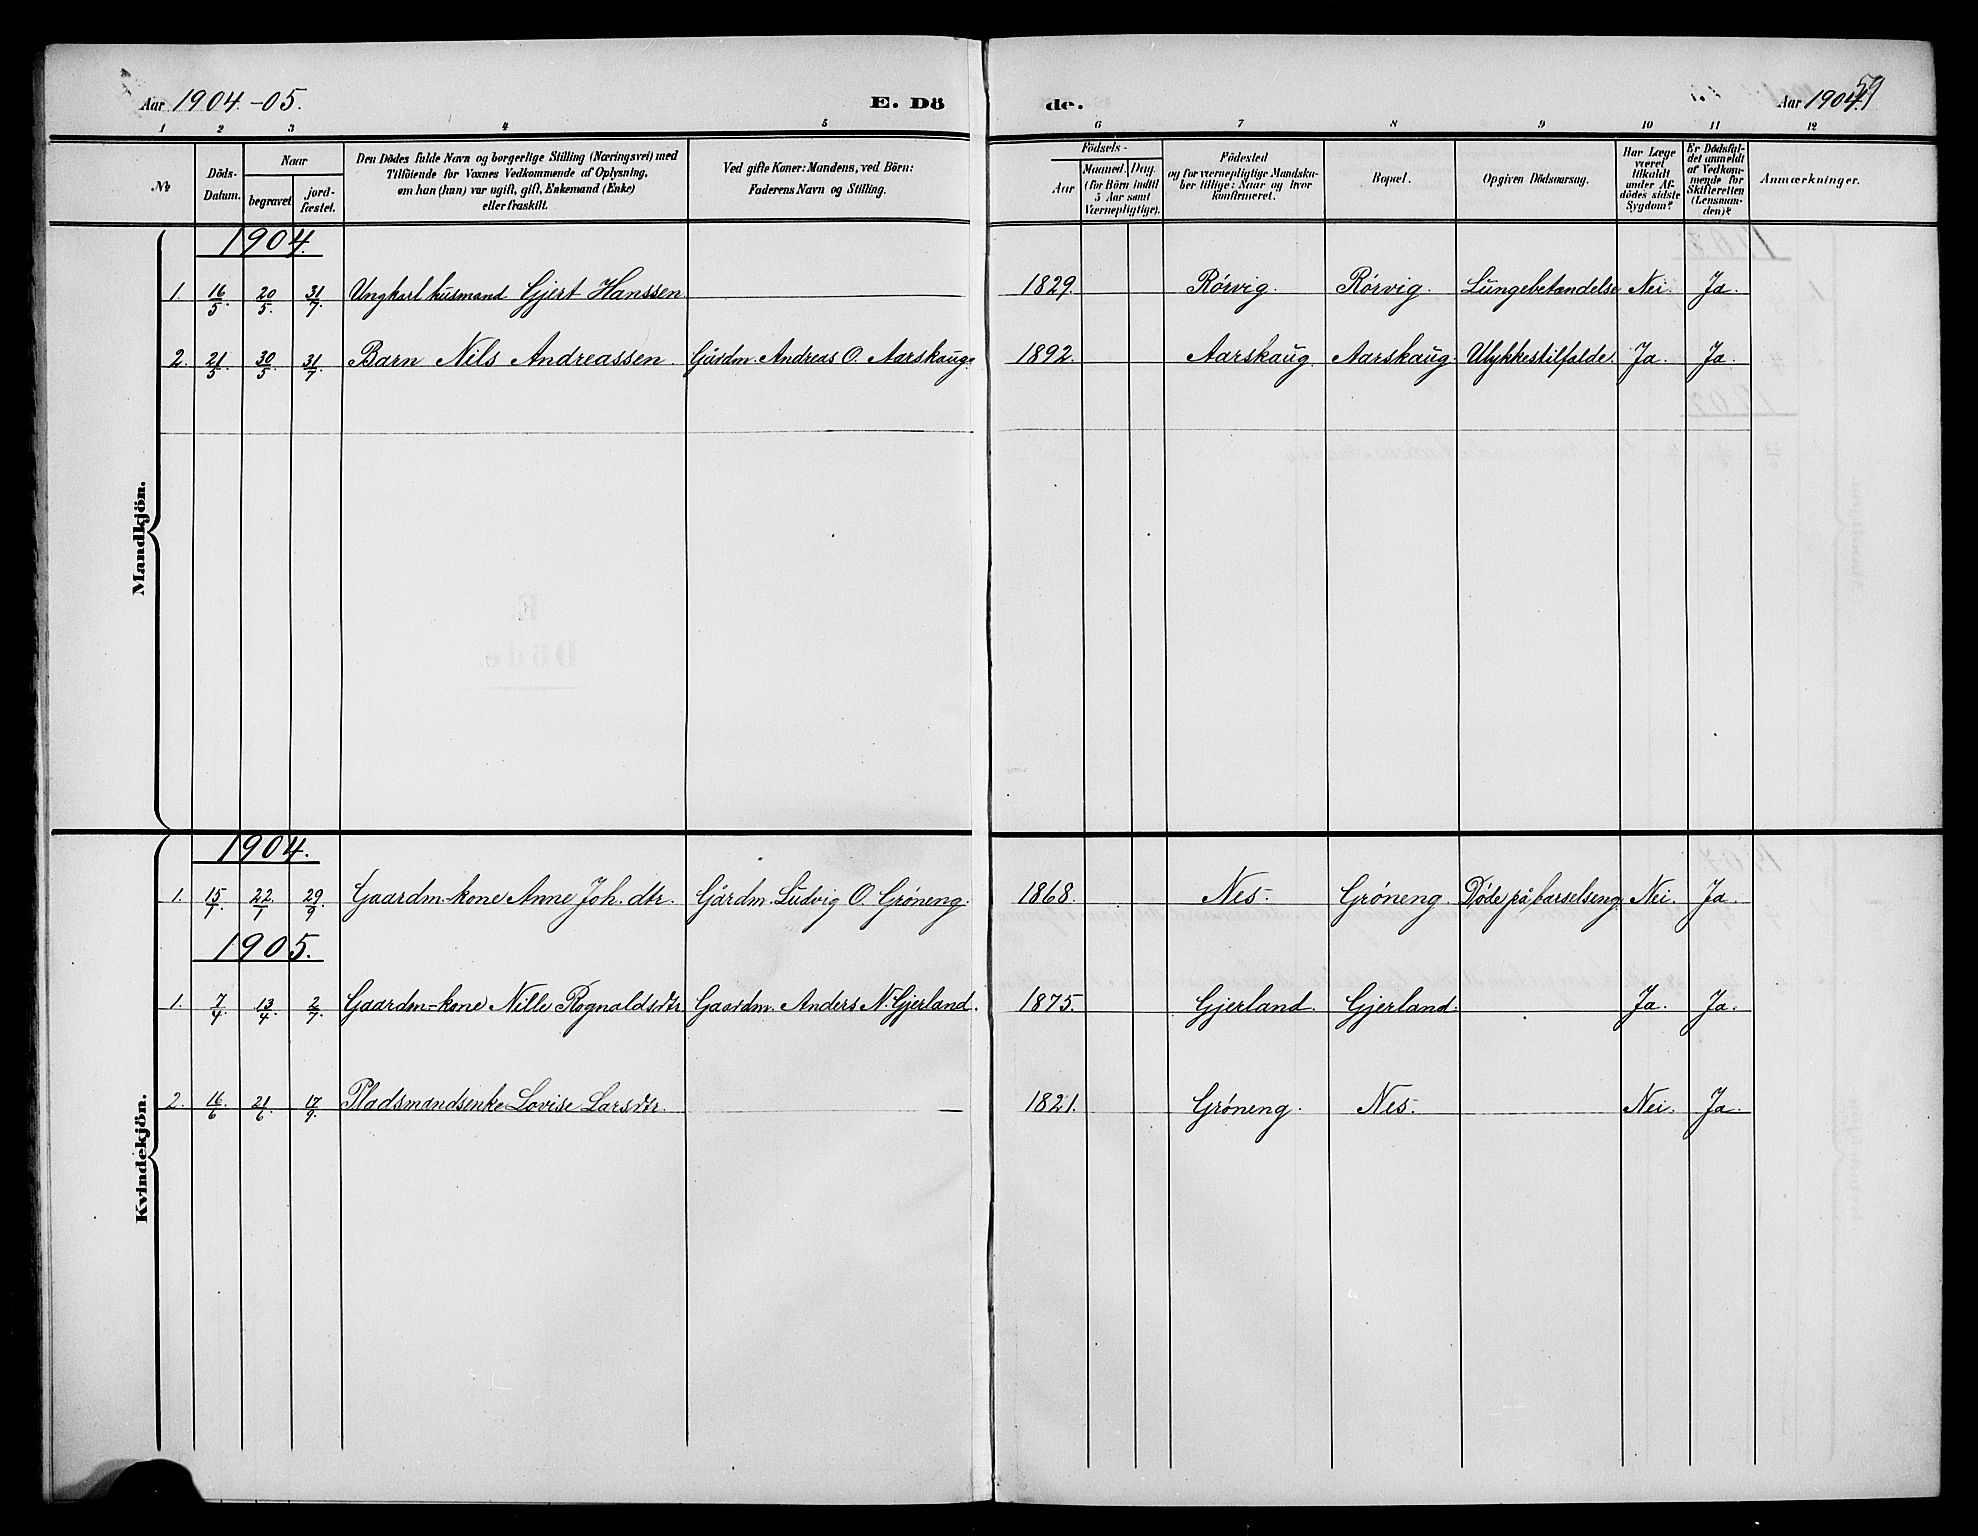 Aar 1904.-05. E. Dö de. Aar 1904. 59
1 2 3 4 5 6 7 8 9 10 11 12
№
Döds-Datum.
Naar
begravet
jord-fæstet.
Den Dödes fulde Navn og borgerlige Stilling (Næringsvei) med
Tilföiende for Voxnes Vedkommende af Oplysning,
om han (hun) var ugift, gift, Enkemand (Enke)
eller fraskilt.
Ved gifte Koner: Mandens, ved Börn:
Faderens Navn og Stilling.
Födsels-
Aar
Maaned. Dag.
(for Börn indtil
5 Aar samt
Værnepligtige).
Födested
og for værnepligtige Mandska-
ber tillige: Naar og hvor
konfirmeret.
Bopæl.
Opgiven Dödsaarsag.
Har Læge
været
tilkaldt
under Af-
dödes sidste
Sygdom?
Er Dödsfal-
det anmeldt
af Vedkom-
mende for
Skifteretten
(Lensman-
den)?
Anmærkninger.
Mandkjön.
1904.
1. 16/5 20/5. 31/7 Ungkarl husmand Gjert Hanssen 1829. Rörvig. Rörvig. Lungebetændelse Nei. Ja.
2. 21/5 30/5 31/7 Barn Nils Andreassen. Gårdm. Andreas O. Aarskaug. 1892. Aarskaug. Aarskaug. Ulykkestilfælde. Ja. Ja.
Kvindekjön.
1904.
1. 15/7 22/7 29/9 Gaardm.-kone Anne Joh. dtr. Gårdm. Ludvig O. Gröneng. 1868. Nes. Gröneng. Döde på barselseng. Nei. Ja.
1905.
1. 7/4 13/4 2/7 Gaardm-kone Nille Rognaldsdtr. Gaardm. Anders N. Gjerland. 1875. Gjerland. Gjerland. Ja. Ja.
2. 16/6 21/6 17/9. Pladsmandsenke Lovise Larsdtr. — 1821. Gröneng. Nes. Nei. Ja.
E
Döde.